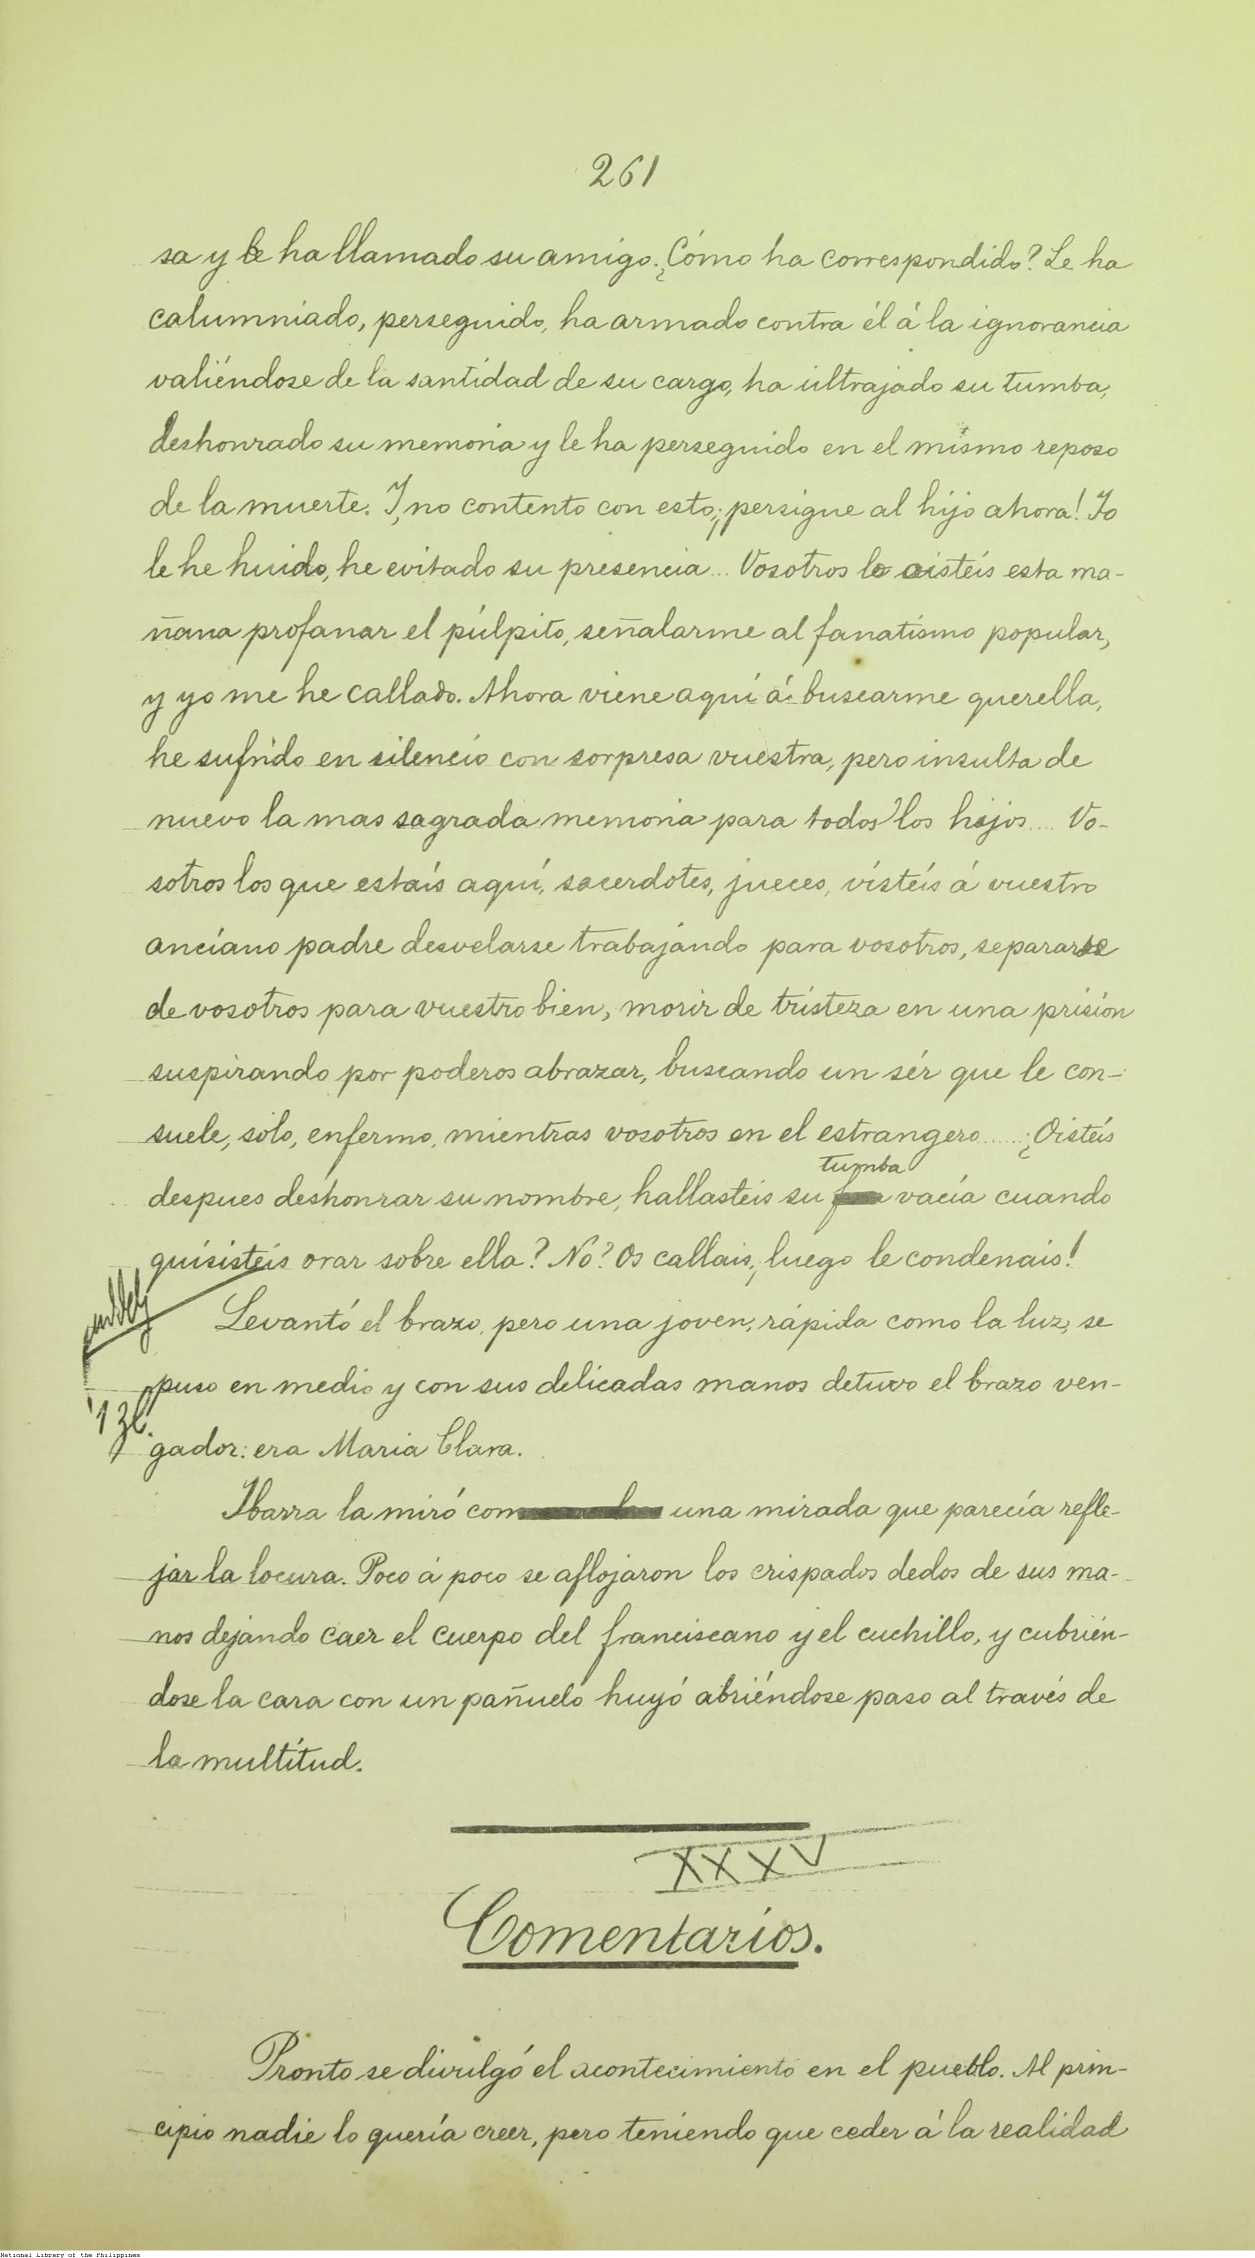 261
sa y le ha llamado su amigo. ¿Cómo ha correspondido? Le ha
calumniado, perseguido, ha armado contra él á la ignorancia
valiéndose de la santidad de su cargo, ha ultrajado su tumba,
deshonrado su memoria y le ha perseguido en el mismo reposo
de la muerte. Y, no contento con esto, ¡persigue al hijo ahora! Yo
le he huido, he evitado su presencia... Vosotros le oisteis esta ma-
ñana profanar el púlpito, señalarme al fanatismo popular,
y yo me he callado. Ahora viene aquí á buscarme querella,
he sufrido en silencio con sorpresa vuestra, pero insulta de
nuevo la mas sagrada memoria para todos los hijos.... Vo-
sotros los que estais aquí, sacerdotes, jueces, visteis á vuestro
anciano padre desvelarse trabajando para vosotros, separarse
de vosotros para vuestro bien, morir de tristeza en una prisión
suspirando por poderos abrazar, buscando un sér que le con-
suele, solo, enfermo, mientras vosotros en el estrangero..... ¿Oisteis
tumba
despues deshonrar su nombre, hallasteis su vacía cuando
quisisteis orar sobre ella? No? Os callais, ¡luego le condenais!
Levantó el brazo, pero una joven, rápida como la luz, se
puso en medio y con sus delicadas manos detuvo el brazo ven-
gador: era Maria Clara.
Ibarra la miró con una mirada que parecía refle-
jar la locura. Poco á poco se aflojaron los crispados dedos de sus ma-
nos dejando caer el cuerpo del franciscano y el cuchillo, y cubrién-
dose la cara con un pañuelo huyó abriéndose paso al través de
la multitud.
XXXV
Comentarios.
Pronto se divulgó el acontecimiento en el pueblo. Al prin-
cipio nadie lo quería creer, pero teniendo que ceder á la realidad
National Library of the Philippines